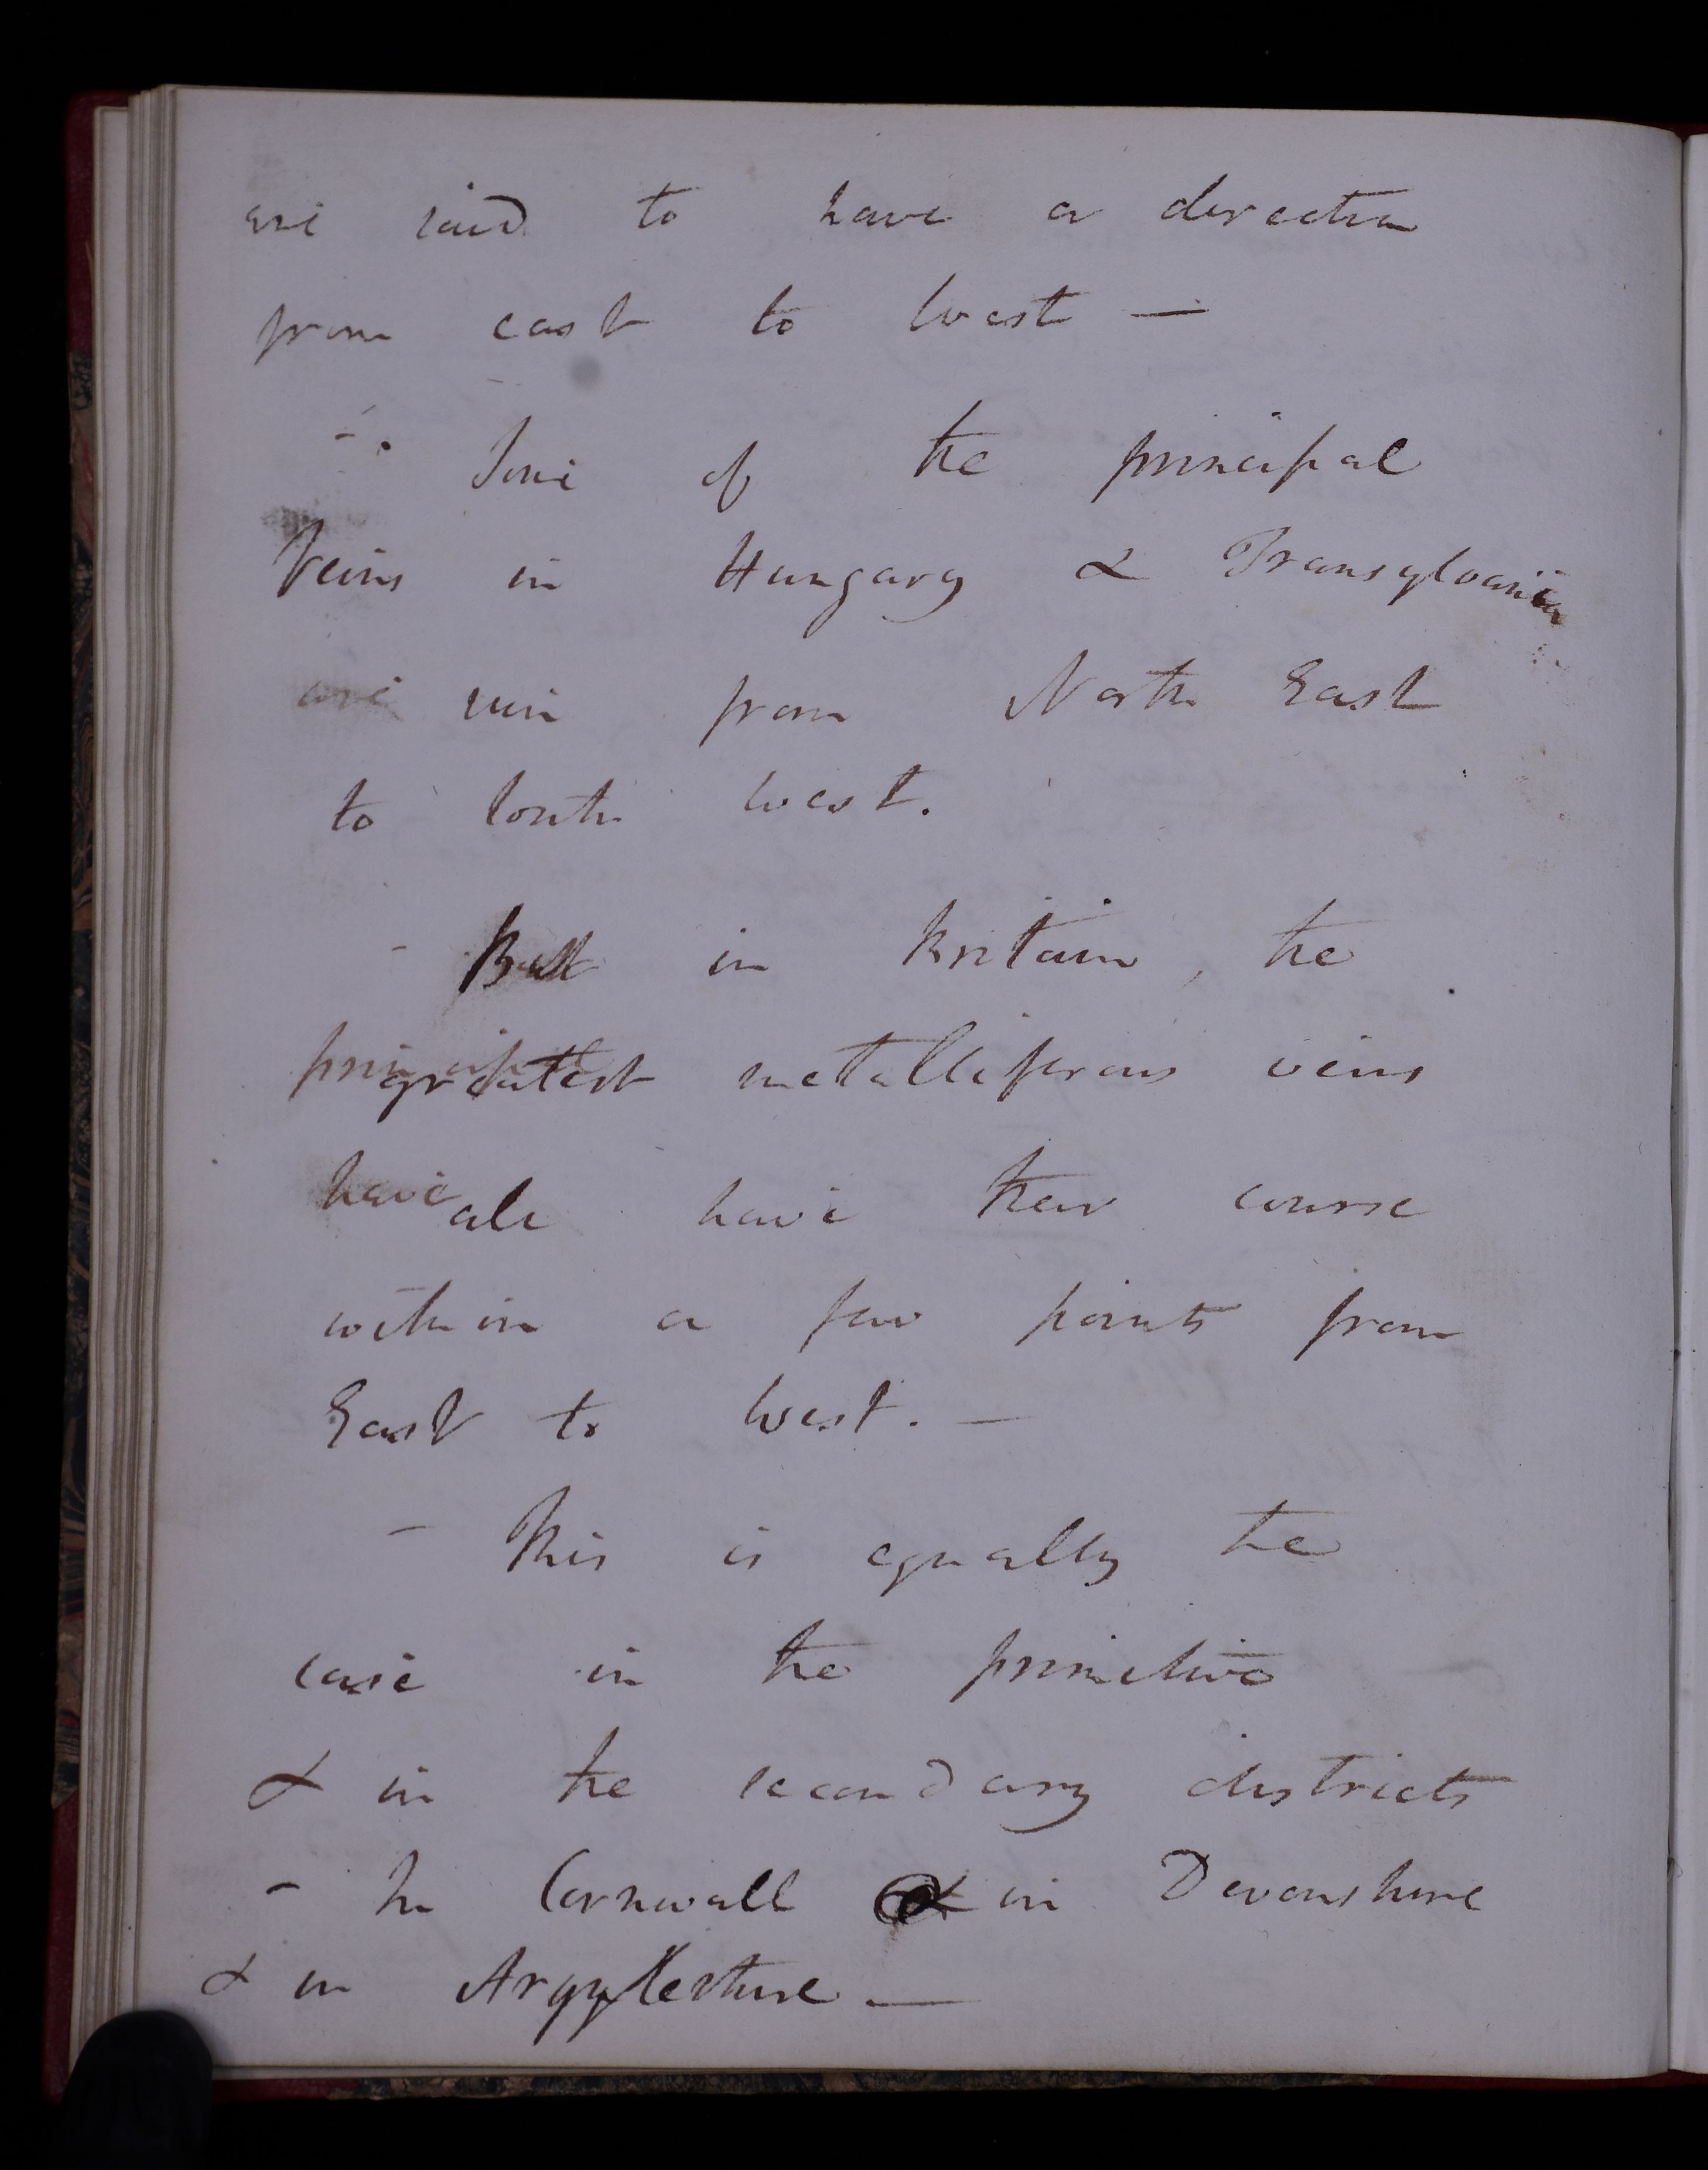 are said to have a direction
from east to West —
- . Some of the principal
Veins in Hungary & Transylvania
are run from North East
to South West.
- But in Britain, the
principal greatest metalliferous veins
have all have their course
within a few points from
East to West. —
- This is equally the
case in the primitive
& in the secondary districts
- In Cornwall & in Devonshire
& in Argyleshire —